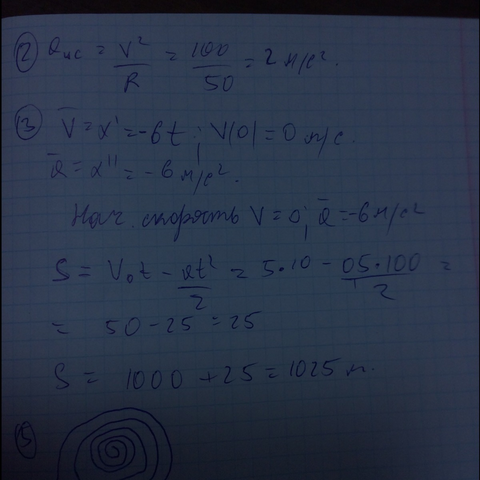 ② aцс = V²/R = 100/50 = 2 м/с².
③ V̄ = x' = -6t ; V(0) = 0 м/с.
ā = x'' = -6 м/с².
Нач. скорость V = 0; ā = -6 м/с²
S = V₀t - at²/2 = 5·10 - 0,5·100/2 =
= 50 - 25 = 25
S = 1000 + 25 = 1025 м.
⑤